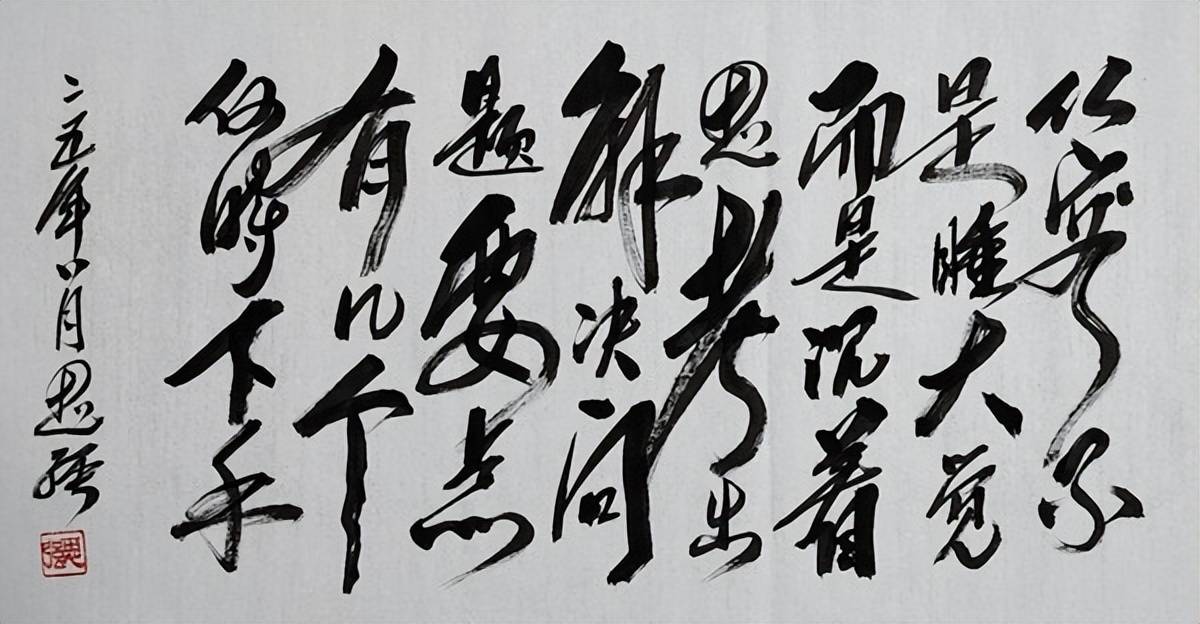 从容不
是睡大觉
而是沉着
思考出
解决问
题要点
有几个
何时下手
二五年八月思强